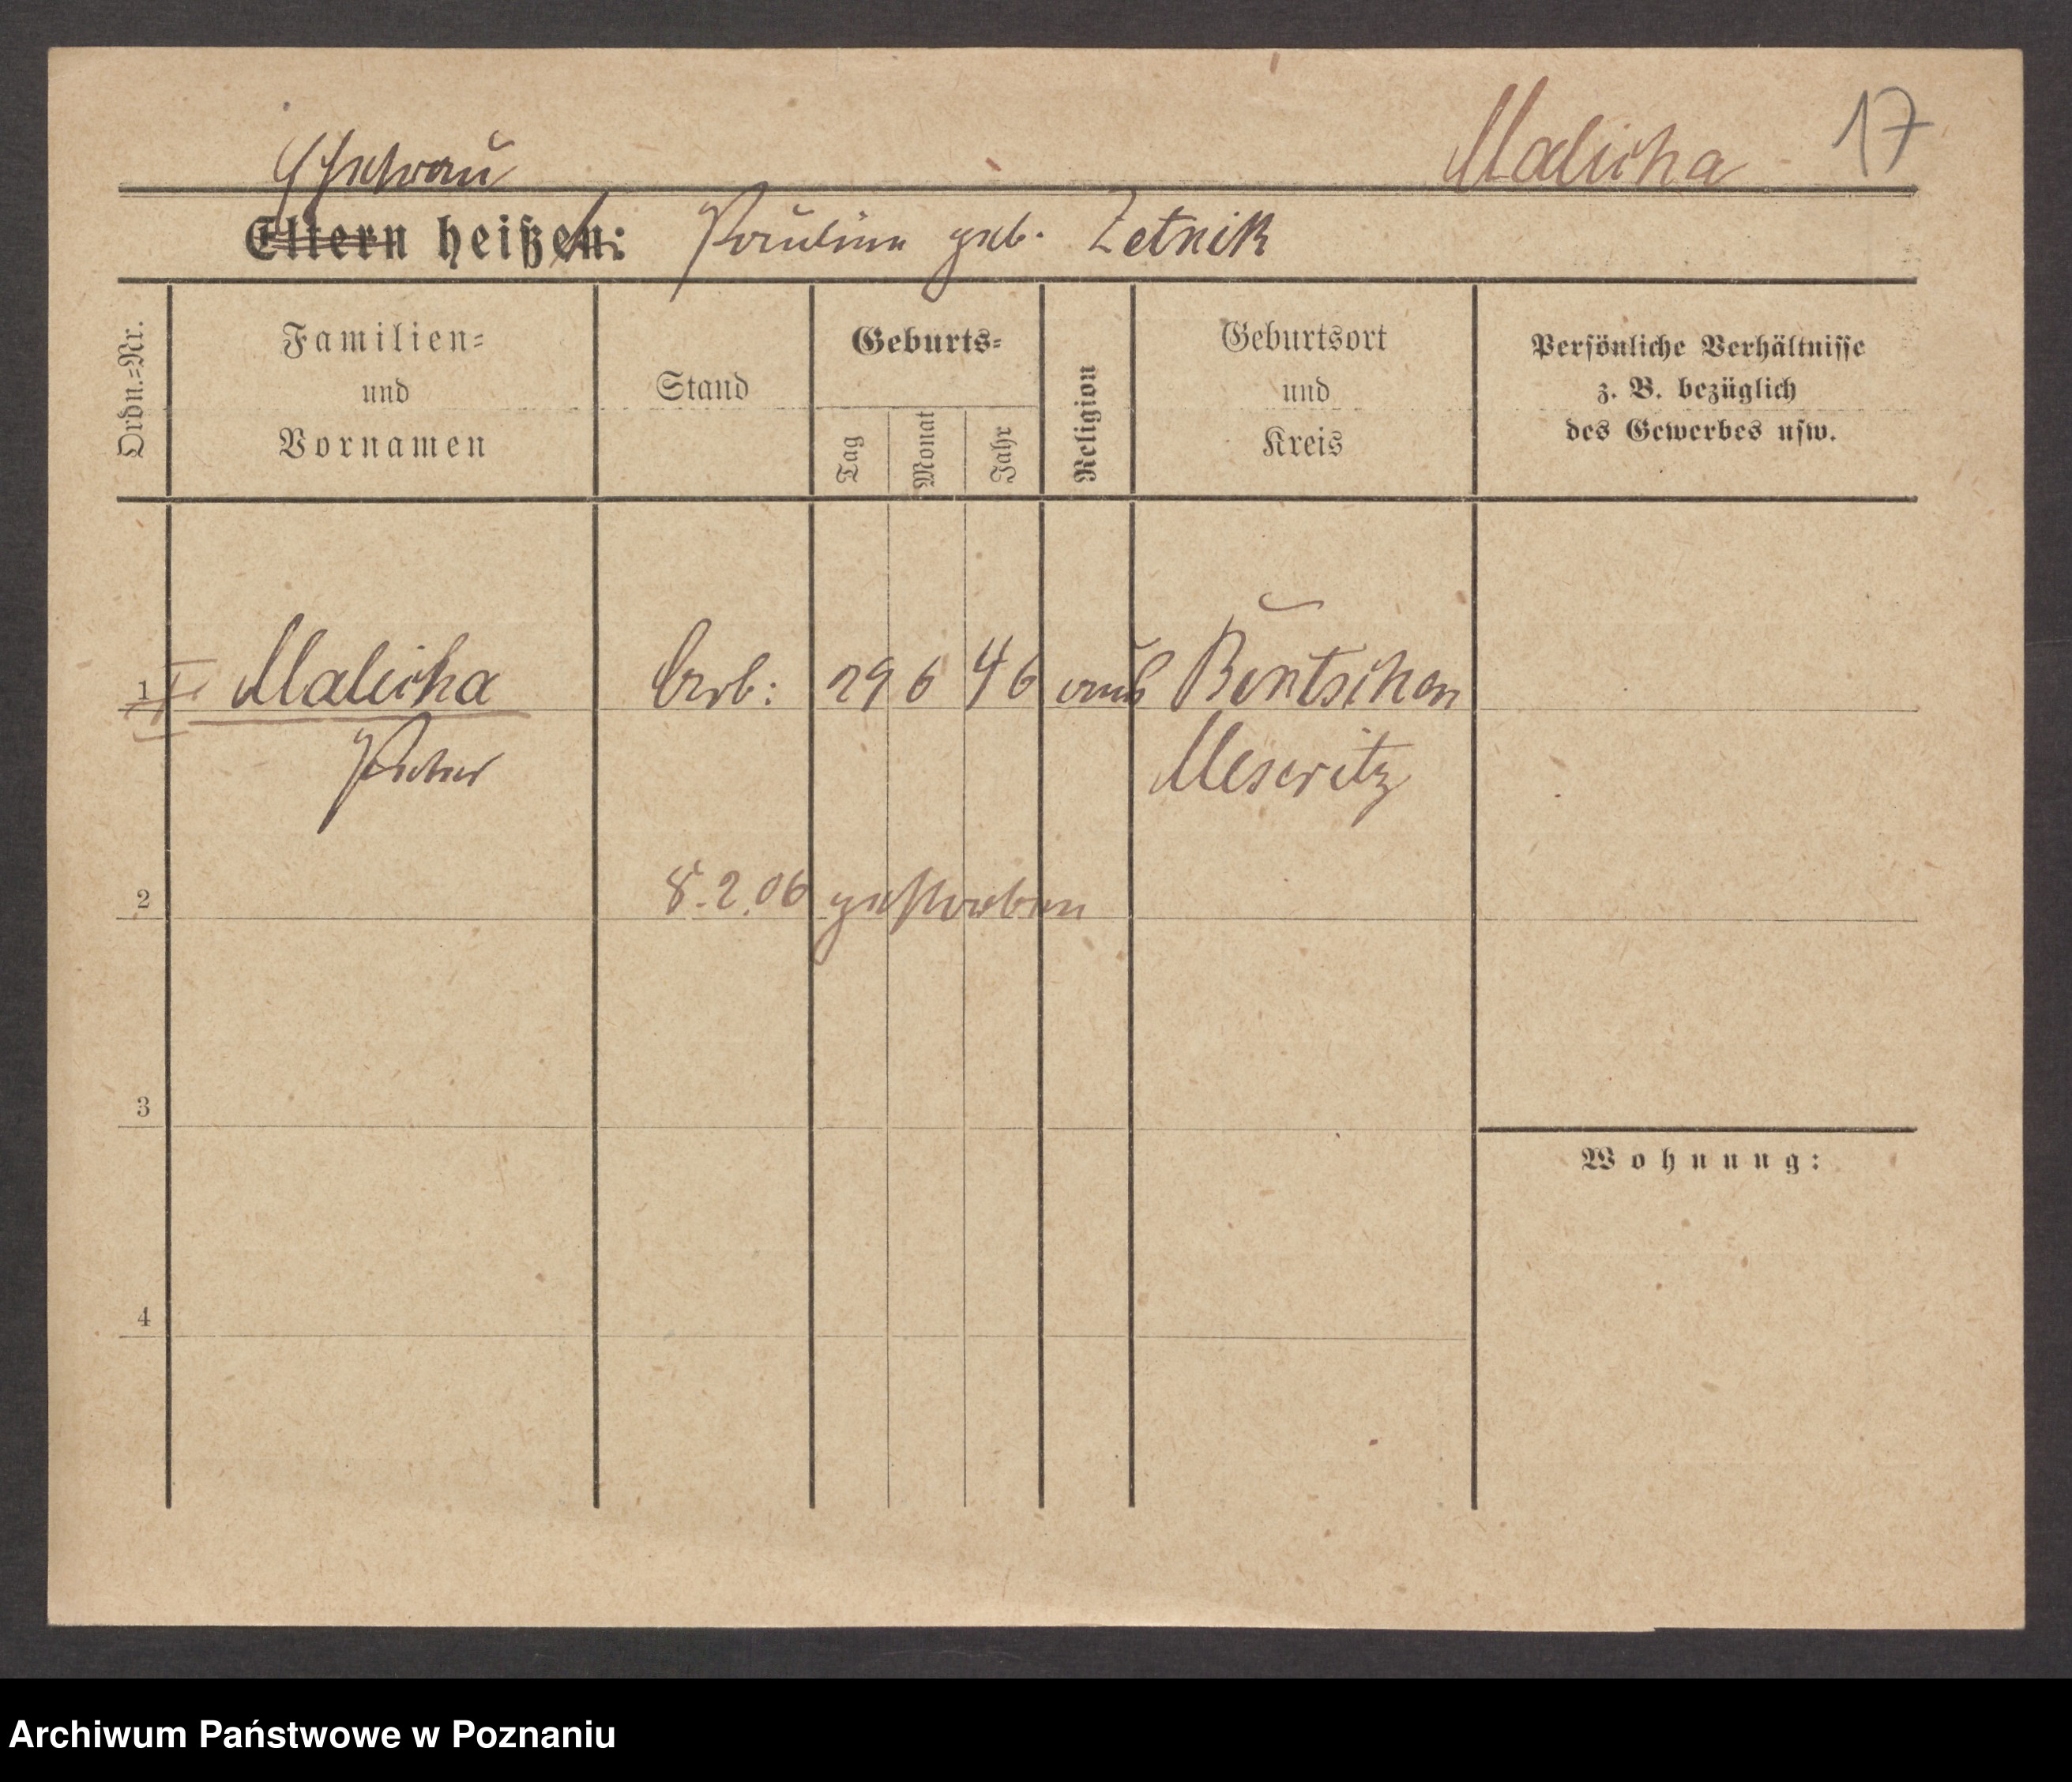 Malicha 17
Ehefrau
Eltern heißen: Pauline geb. Zetnik
Ordn.=Nr.
Familien=
und
Vornamen
Stand
Geburts=
Tag
Monat
Jahr
Religion
Geburtsort
und
Kreis
Persönliche Verhältnisse
z. B. bezüglich
des Gewerbes usw.
1 Malicha Arb: 29 6 46 Bentschen
Peter Meseritz
2 8.2.06 gestorben
3
Wohnung:
4
Archiwum Państwowe w Poznaniu